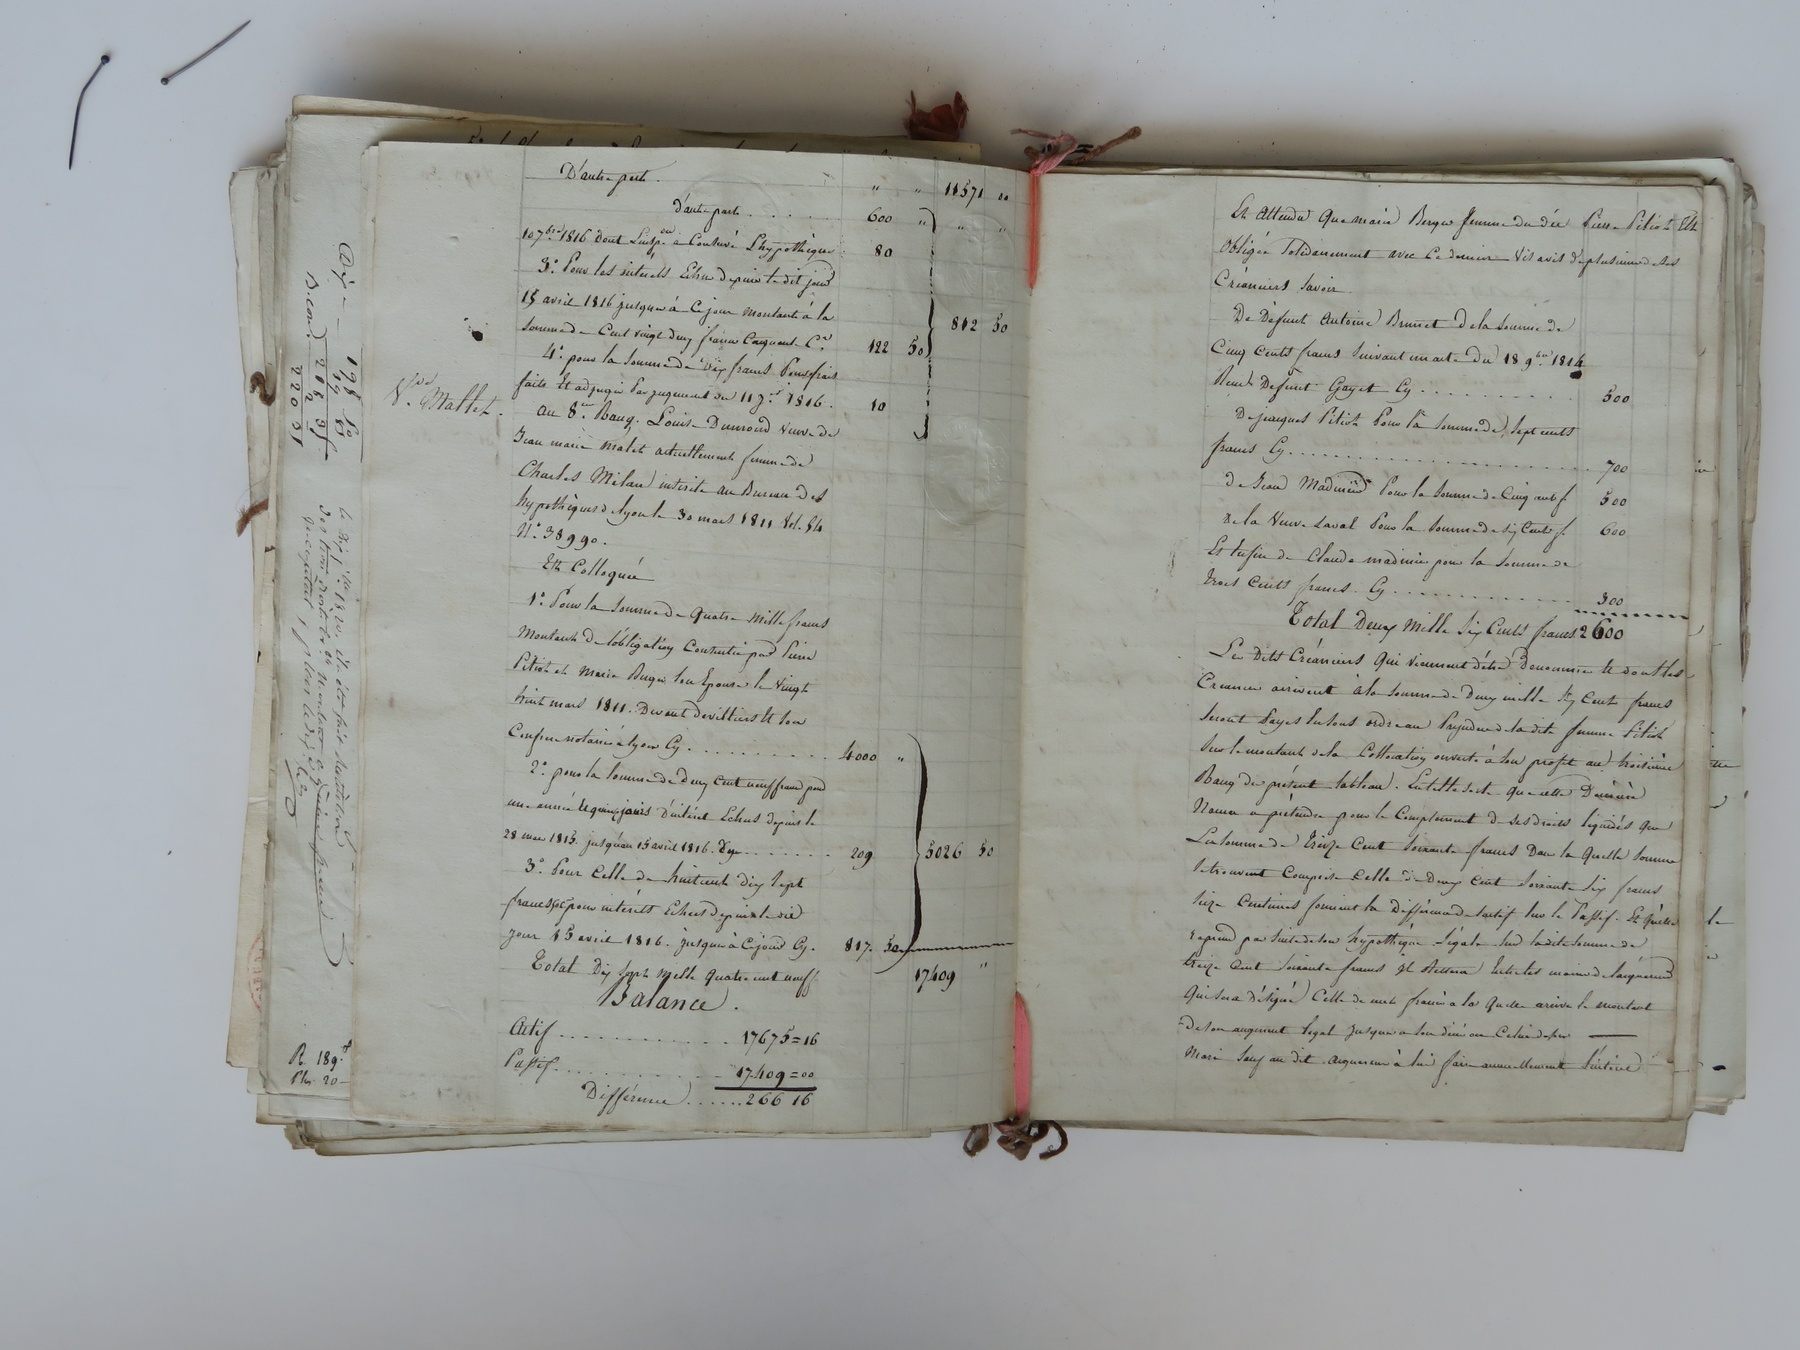 D'autre part . " " 11571 00
d'autre part . . . . . . 600 " " "
10 7bre 1816 dont l'insp.on a Conservé L'hypothèque 80
3.o Pour les intérêts Echus depuis le dit jour
15 avril 1816 jusques à Ce jour montant à la
Somme de Cent vingt deux francs Cinquante C.es 122 50 812 50
4.o pour la Somme de dix francs Pour frais
faits Et adjugés Par jugement du 11 7.bre 1816 . 10
V.ve Mallet .
au 8.me Rang . Louise Dumond Veuve de
Jean marie Malet actuellement femme de
Charles Milan inscrite au Bureau des
hypothèques de lyon le 30 mars 1811 Vol. 54
N.o 38990 .
Est Colloquée
1.o Pour la Somme de Quatre Mille francs
Montant de l'obligation Consentie par Pierre
Pitiot et Marie Berger Son Epouse le Vingt
huit mars 1811 . Devant Devilliers Et Son
Confrere notaires à lyon Cy . . . . . . . . . . 4000 "
2.o pour la Somme de Deux Cent neuf francs pour
une année Et quinze jours D'intéret Echus depuis le
28 mars 1815 . jusqu'au 15 avril 1816 . Cy . . . . . . . 209 5026 50
3.o Pour Celle de huit cent dix Sept
francs 50c pour intérêts Echus depuis le dit
jour 15 avril 1816 . jusques à Ce jour Cy . 817 . 50
Total Dix Sept Mille quatre cent neuf f. 17409 "
Balance .
Actif . . . . . . . . . . . 17675 = 16
Passif . . . . . . . . . . . 17409 = 00
Différence . . . . . . 266 16
195 50
19 55
215 05
Decond 2
220 05
R 189 f
Plus 20 -
Et Attendu Que marie Berger femme du dit Pierre Pitiot Est
Obligée Solidairement avec Ce dernier Vis avis de plusieurs de Ses
Créanciers Savoir
De Défunt Antoine Brunet de la Somme de
Cinq Cents francs Suivant un acte du 18 9.bre 1814
Recu Défunt Gayet Cy . . . . . . . . . . 500
De jacques Pitiot Pour la Somme de Sept cents
francs Cy . . . . . . . . . . . . . . . . 700
de Jean Madinier Pour la Somme de Cinq cents f. 500
de la Veuve Laval Pour la Somme de Six Cents f. 600
Et Enfin de Claude madinier pour la Somme de
trois Cents francs Cy . . . . . . . . . . . 300
Total Deux Mille Six Cents francs 2600
Les Dits Créanciers Qui viennent d'être Dénommés Et dont les
Créances arrivent à la Somme de Deux mille Six Cent francs
Seront Payés En Sous ordre au Préjudice de la dite femme Pitiot
Sur le montant de la Collocation ouverte à Son profit au troisième
Rang du présent tableau . En telle Sorte que cette Dernière
N'aura à prétendre pour le Complement de Ses droits liquidés que
La Somme de treize Cent Soixante francs Dans la Quelle Somme
Se trouvent Compris Celle de Deux Cent Soixante Six francs
Seize Centimes formant la Différence de l'actif Sur le Passif . Et Qu'elle
reprend par Suite de Son hypothèque légale Sur la dite Somme de
treize Cent Soixante francs Il restera Entre les mains de l'acquéreur
Qui Sera désigné Celle de cent francs a la Quelle arrive le montant
de Son augment légal jusques a Son décès ou Celui de Son
Mari Sauf au dit acquereur à lui faire annuellement l'intéret